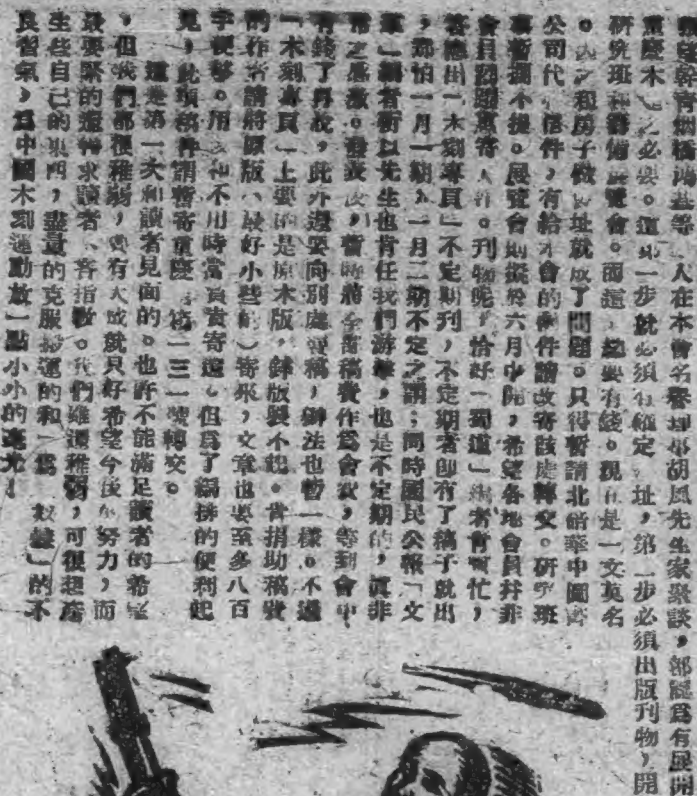 人在本會名譽理事胡風先生家聚談，都認為有展開
重慶木 之必要。這第一步就必須有確定 址，第一步必須出版刊物，開
研究班和籌備展覽會。而這 總要有錢。現在是一文莫名
。因之和房子做 址就成了問題。只得暫請北碚華中圖書
公司代 信件，有給本會的郵件請改寄該處轉交。研究班
暫擱不提。展覽會則擬於六月中開，希望各地會員幷非
會員踴躍惠寄 作。刊物呢，恰好「蜀道」編者會幫忙，
答應出「木刻專頁」不定期刊，不定期者即有了稿子就出
，那怕一月一期，一月二期不定之謂；同時國民公報「文
羣」編者靳以先生也肯任我們游擊，也是不定期的，眞非
常之感激。發表後，暫時將全部稿費作為會費，等到會中
有錢了再說，此外還要向別處籌稿，辦法也暫一樣。不過
「木刻專頁」上要的是原木版，鋅版製不起。肯捐助稿費
的作者請將原版（最好小些的）寄來，文章也要至多八百
字便移。用 和不用時當負責寄還。但為了編排的便利起
見，此項稿件請暫寄重慶 箱一三一號轉交。
這是第一次和讀者見面的。也許不能滿足讀者的希望
，但我們都很稚弱， 有大成就只好希望今後的努力，而
最要緊的還得求讀者、 指教。我們雖還稚弱，可很想產
生些自己的東西，盡量的克服搬運的和 「奴隸」的不
良習氣，為中國木刻運動放一點小小的 光！